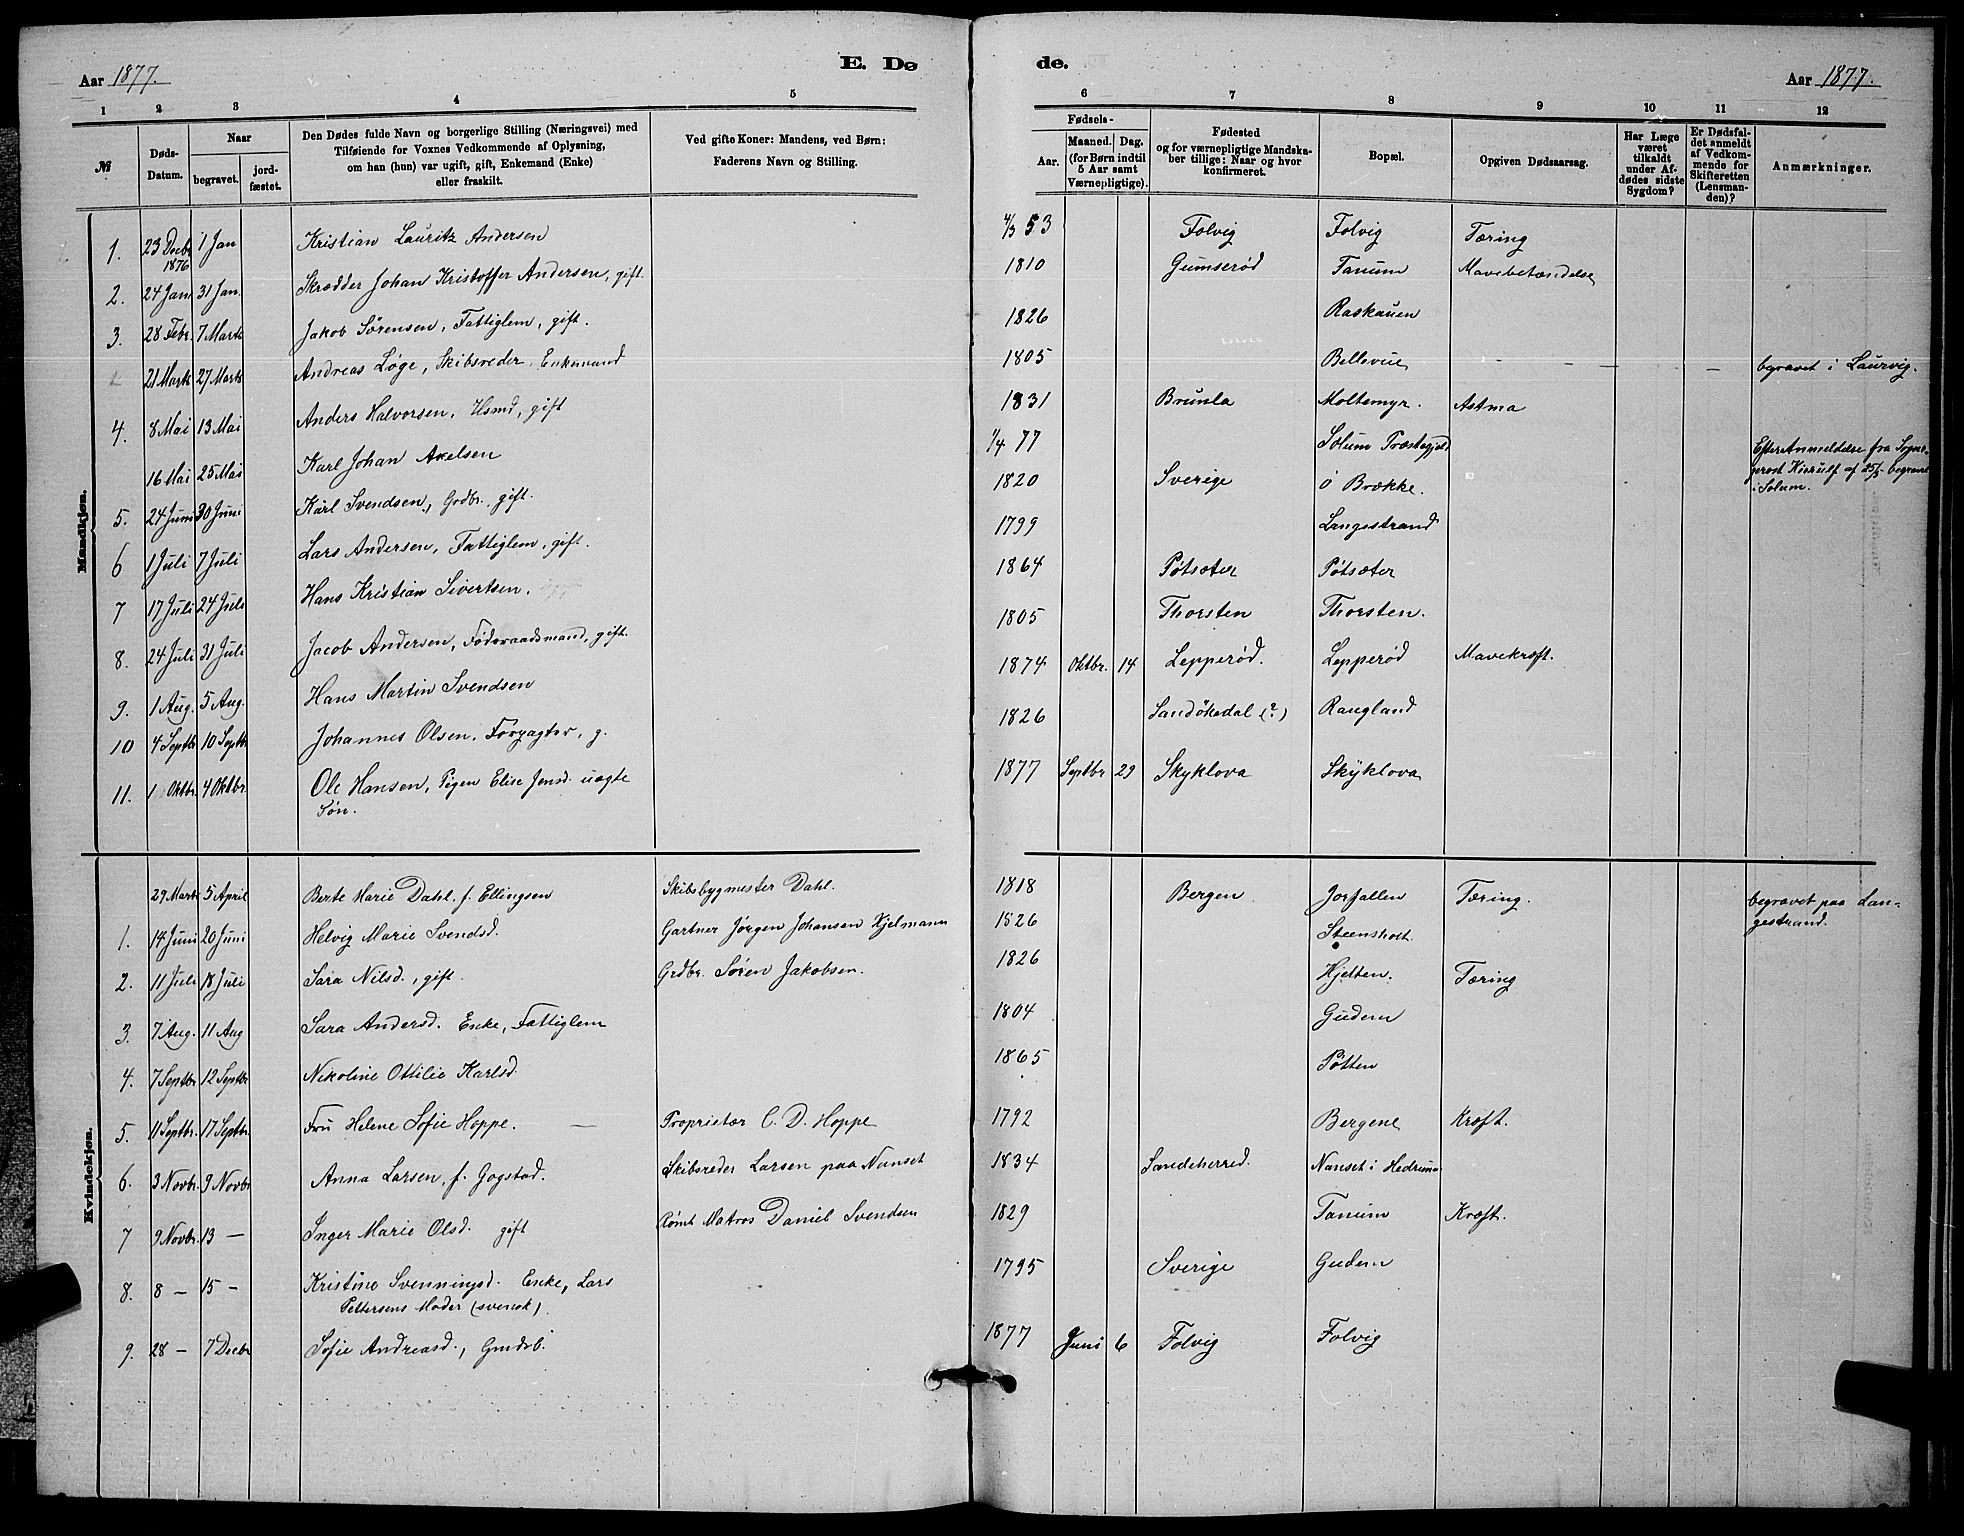 Aar 1877.
E. Dø
de.
Aar 1877.
1 2 3 4 5
6 7 8 9 10 11 12
№
Døds-Datum.
Naar
begravet.
jord-fæstet.
Den Dødes fulde Navn og borgerlige Stilling (Næringsvei) med
Tilføiende for Voxnes Vedkommende af Oplysning,
om han (hun) var ugift, gift, Enkemand (Enke)
eller fraskilt.
Ved gifte Koner: Mandens, ved Børn:
Faderens Navn og Stilling.
Fødsels-
Aar. Maaned. Dag.
(for Børn indtil
5 Aar samt
Værnepligtige).
Fødested
og for værnepligtige Mandska-
ber tillige: Naar og hvor
konfirmeret.
Bopæl.
Opgiven Dødsaarsag.
Har Læge
været
tilkaldt
under Af-
dødes sidste
Sygdom?
Er Dødsfal-
det anmeldt
af Vedkom-
mende for
Skifteretten
(Lensman-
den)?
Anmærkninger.
Mandkjøn.
1. 23 Decbr 1876 1 Jan Kristian Lauritz Andersen 4/3 53 Folvig Folvig Tæring
2. 24 Jan 31 Jan. Skrædder Johan Kristoffer Andersen, gift. 1810 Gumserød Tanum Mavebetændelse
3. 28 Febr. 7 Marts Jakob Sørensen, Fattiglem, gift. 1826 Raskauen
21 Marts 27 Marts Andreas Løge, Skibsreder, Enkemand 1805 Bellevue - - - begravet i Laurvig.
4. 8 Mai 13 Mai Anders Halvorsen, Hsmd, gift 1831 Brunla Moltemyr. Astma
16 Mai 25 Mai Karl Johan Axelsen 1/4 77 Solum Præstegjeld Efter Anmeldelse fra Sogne-
prest Kierulf af 25/5 begravet
i Solum.
5. 24 Juni 30 Juni Karl Svendsen, Grdbr. gift. 1820 Sverige Ö Brække.
6 1 Juli 7 Juli Lars Andersen, Fattiglem, gift. 1799 Langestrand
7 17 Juli 24 Juli Hans Kristian Sivertsen. 1864 Pøtsæter Pøtsæter
8. 24 Juli 31 Juli Jacob Andersen, Føderaadsmand, gift. 1805 Thorsten Thorsten.
9. 1 Aug. 5 Aug. Hans Martin Svendsen 1874 Oktbr. 14 Lepperød. Lepperød Mavekræft.
10 4 Septbr 10 Septbr Johannes Olsen, Forpagter, g. 1826 Sandökedal (?) Raugland
11. 1 Oktbr. 4 Oktbr. Ole Hansen, Pigen Elise Jensd. uægte
Søn. 1877 Septbr 29 Skyklova Skyklova
Kvindekjøn.
29 Marts 5 April Berte Marie Dahl, f. Ellingsen Skibsbygmester Dahl. 1818 Bergen Jorfallen Tæring. begravet paa Lan-
gestrand.
1. 14 Juni 20 Juni Helvig Marie Svendsd. Gartner Jørgen Johansen Hjelmann 1826 Steensholt
2. 11 Juli 18 Juli Sara Nilsd., gift. Grdbr. Søren Jakobsen. 1826 Hjelten. Tæring
3. 7 Aug. 11 Aug Sara Andersd. Enke, Fattiglem 1804 Gudem
4. 7 Septbr 12 Septbr Nikoline Ottilie Karlsd. 1865 Pøtten
5. 11 Septbr. 17 Septbr. Fru Helene Sofie Hoppe. — Proprietær C. D. Hoppe 1792 Bergene Kræft.
6. 3 Novbr. 9 Novbr Anna Larsen, f. Gogstad. Skibsreder Larsen paa Nanset 1834 Sandeherred. Nanset i Hedrum
7 9 Novbr. 13 — Inger Marie Olsd. gift Rømt Matros Daniel Svendsen 1829 Tanum Kræft.
8. 8 — 15 — Kristine Svenningsd. Enke, Lars
Pettersens Moder (svensk). 1795 Sverige Gudem
9. 28 — 7 Decbr Sofie Andreasd., Gmdsb. 1877 Juni 6 Folvig Folvig